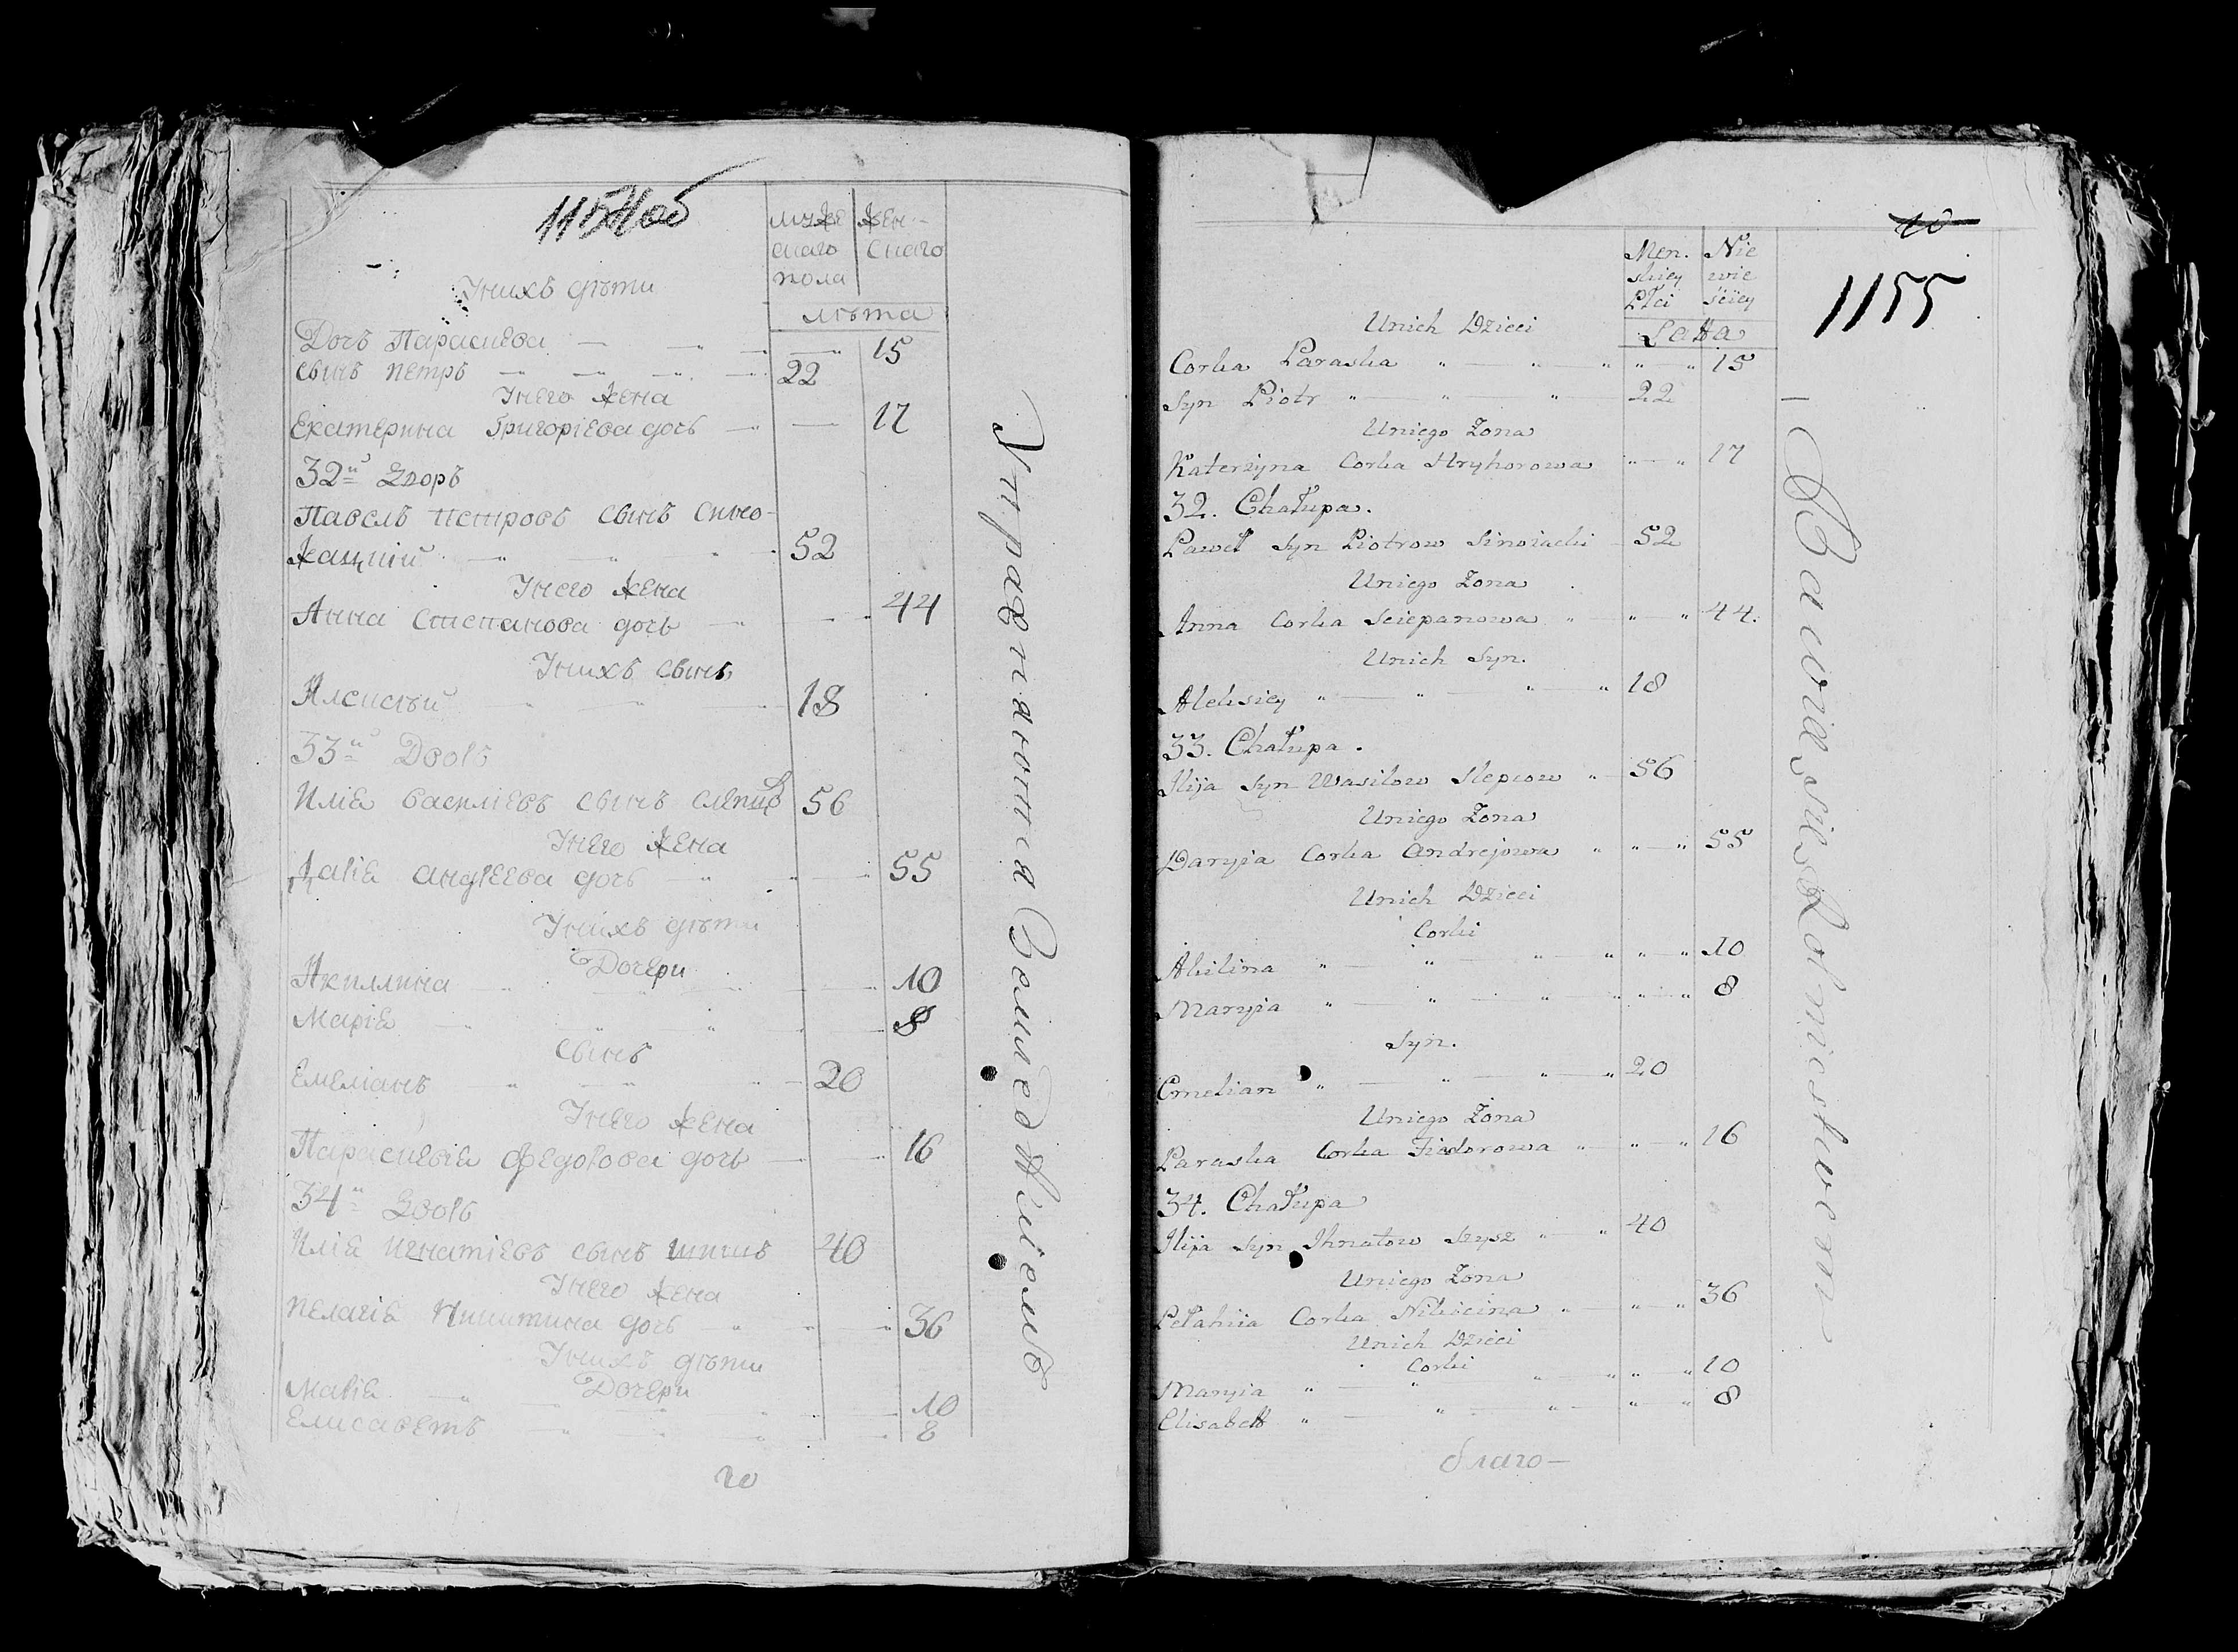 1154 об
муже
скаго
пола
жен-
скаго
лѣта
У нихъ дѣти
Дочь Параскева — 15
Сынъ Петръ — 22
У него жена
Екатерина Григорiева дочь — 17
32й Дворъ
Павелъ Петровъ сынъ Сино-
жацкiй — 52
У него жена
Анна Степанова дочь — 44
У нихъ сынъ
Алексѣй 18
33й Дворъ
Илiя Василiевъ сынъ Слепцо 56
У него жена
Дарiя Андрѣева дочь — 55
У нихъ дѣти
Дочери
Акилина — 10
Марiя — 8
Сынъ
Емелiанъ 20
У него жена
Параскевiя Федорова дочь — 16
34й Дворъ
Илiя Игнатiевъ сынъ Шишъ 40
У него жена
Пелагiя Никитина дочь — 36
У нихъ дѣти
Дочери
Марiя — 10
Елисаветъ — 8
Упражняются Земледѣлiемъ
10
1155
Men.
skiey
Płci
Nie
wie
sciey
Latta
Unich Dzieci
Corka Paraska „ — „ — „ 15
Syn Piotr „ — „ — „ 22
Uniego Zona
Katerżyna Corka Hryhorowa „ — „ 17
32. Chałupa.
Paweł Syn Piotrow Sinoiacki — 52
Uniego Zona
Anna Corka Sciepanowa „ — „ — „ 44.
Unich Syn.
Aleksiey „ — „ — „ — „ 18
33. Chałupa.
Ilija Syn Wasilow Slepcow „ — 56
Uniego Zona
Daryia Corka Andrejowa „ „ — „ 55
Unich Dzieci
Corki
Akilina „ — „ — „ — „ 10
Maryia „ — „ — „ — „ 8
Syn.
Emelian „ — „ — „ — „ 20
Uniego Zona
Paraska Corka Fiodorowa „ — „ — „ 16
34. Chałupa
Ilija Syn Ihnatow Szysz „ — „ 40
Uniego Zona
Pełahiia Corka Nikicina „ — „ — „ 36
Unich Dzieci
Corki
Maryia „ — „ — „ — „ 10
Elisabett „ — „ — „ — „ 8
благо-